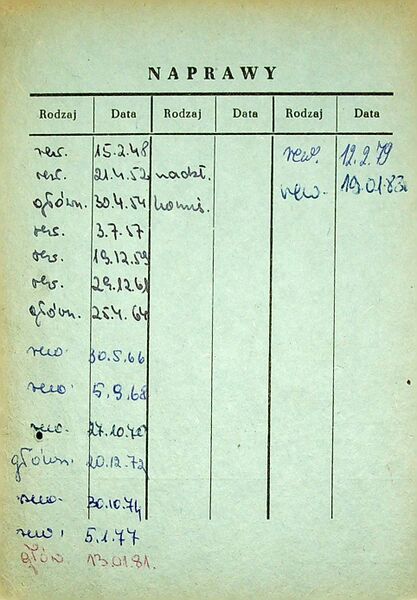 NAPRAWY
Rodzaj Data Rodzaj Data Rodzaj Data
rew. 15.2.48
rew. 21.4.52 nadkł.
główn. 30.4.54 komis.
rew. 3.7.57
rew. 19.12.59
rew. 29.12.61
główn. 25.4.64
rew. 30.5.66
rew. 5.9.68
rew. 27.10.70
główn. 20.12.72
rew. 30.10.74
rew. 5.1.77
głów. 13.01.81.
rew. 12.2.79
rew. 19.01.83